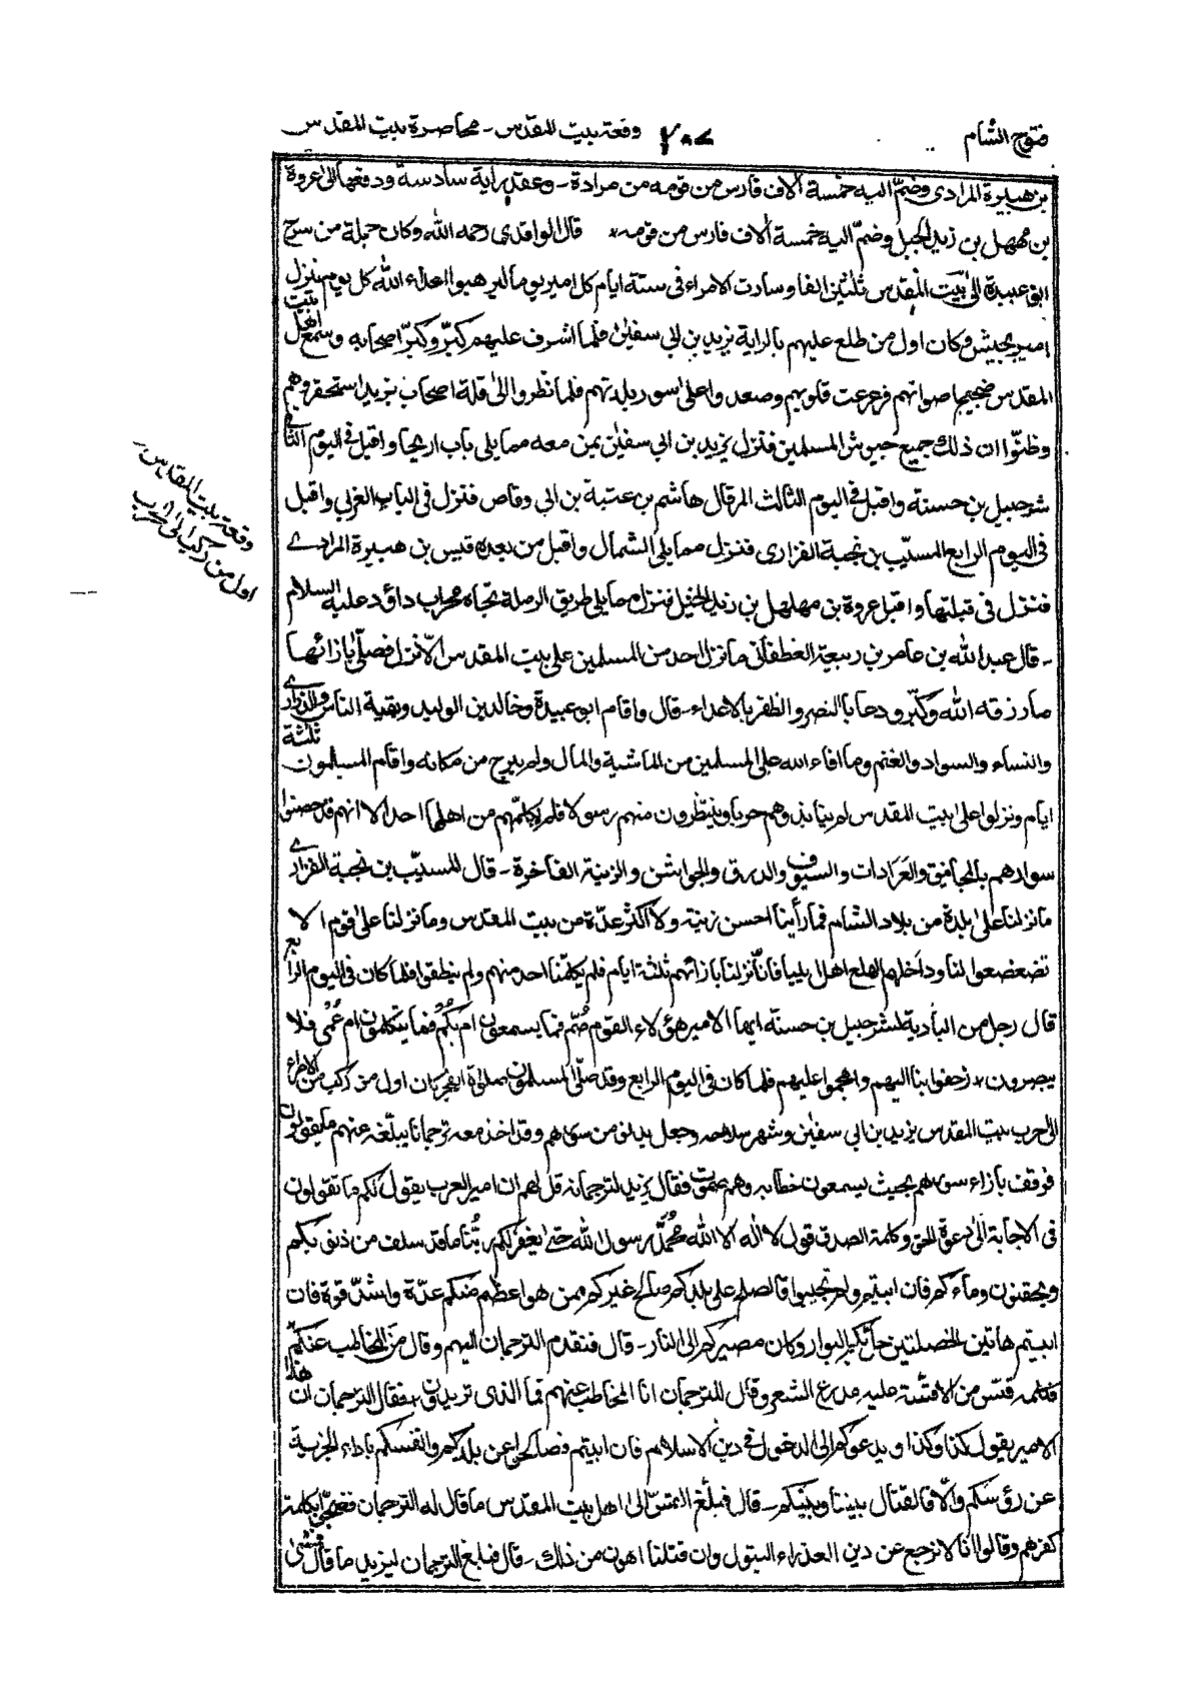 فتوح الشام
وقعة بيت المقدس - محاصرة بيت المقدس
بن هبيرة المرادي وضمّ اليه خمسة آلاف فارس من قومه من مرادة - وعقد براية سادسة ودفعها الى عروة
بن مهلهل بن زيد الخيل وضمّ اليه خمسة آلاف فارس من قومه * قال الواقدي رحمه الله وكان جملة من سرح
ابو عبيدة الى بيت المقدس ثلثين الفا وسارت الامراء في ستة ايام كل امير يوم ليرهبوا اعداء الله كل يوم ينزل
امير بجيش وكان اول من طلع عليهم بالراية يزيد بن ابي سفين فلما اشرف عليهم كبّر وكبّر اصحابه وسمع اهل بيت
المقدس ضجيج اصواتهم فزعزعت قلوبهم وصعدوا على اسور بلدتهم فلما نظروا الى قلة اصحاب يزيد استحقروهم
وظنّوا ان ذلك جميع جيوش المسلمين فنزل يزيد بن ابي سفين بمن معه مما يلي باب اريحا واقبل في اليوم الثاني
شرحبيل بن حسنة واقبل في اليوم الثالث المرقال هاشم بن عتبة بن ابي وقاص فنزل في الباب الغربي واقبل
في اليوم الرابع المسيّب بن نجبة الفزاري فنزل مما يلي الشمال واقبل من بعده قيس بن هبيرة المرادي
فنزل في قبلتها واقبل عروة بن مهلهل بن زيد الخيل فنزل مما يلي طريق الرملة تجاه محراب داؤد عليه السلام
- قال عبد الله بن عامر بن ربيعة الغطفاني ما نزل احد من المسلمين على بيت المقدس الّا نزل فصلّى بازائها
ما رزقه الله وكبّر ودعا بالنصر والظفر بالاعداء - قال واقام ابو عبيدة وخالد بن الوليد وبقية الناس والذراري
والنساء والسواد والغنم وما افاء الله على المسلمين من الماشية والمال ولم يبرح من مكانه واقام المسلمون ثلثة
ايام ونزلوا على بيت المقدس لم ينابذوهم حربا وينتظرون منهم رسولا فلم يكلمهم من اهلها احد الا انهم قد حصنوا
سوادهم بالمجانيق والعرادات والسيوف والدرق والجواشن والزينة الفاخرة - قال المسيّب بن نجبة الفزاري
ما نزلنا على بلدة من بلاد الشام فما رأينا احسن زينة ولا اكثر عدّة من بيت المقدس وما نزلنا على قوم الا
تضعضعوا لنا وداخلهم الهلع الا اهل يليا فانا نزلنا بازائهم ثلثة ايام فلم يكلّمنا احد منهم ولم ينطقوا فلما كان في اليوم الرابع
قال رجل من البادية لشرحبيل بن حسنة ايها الامير هؤلاء القوم صُمّ فما يسمعون ام بُكْمٌ فما يتكلمون ام عُمْي فلا
يبصرون * زحفوا بنا اليهم واهجموا عليهم فلما كان في اليوم الرابع وقد صلّى المسلمون صلوة الفجر كان اول من ركب من الامراء
الى حرب بيت المقدس يزيد بن ابي سفين وشهر سلاحه وجعل يدنو من سورهم وقد اخذ معه ترجمانا يبلّغه عنهم ما يقولون
فوقف بازاء سورهم بحيث يسمعون خطابه وهم صموت فقال يزيد لترجمانه قل لهم ان امير العرب يقول لكم ما تقولون
في الاجابة الى دعوة الحق وكلمة الصدق قول لا اله الا الله محمّد رسول الله حتى يغفر لكم ربُّنا ما قد سلف من ذنوبكم
وتحقنون دماءكم فان ابيتم ولم تجيبوا فالصلح على بلدكم كما صالح غيركم ممن هو اعظم منكم عدّة واشدّ قوة فان
ابيتم هاتين الخصلتين حلّ بكم البوار وكان مصيركم الى النار - قال فتقدم الترجمان اليهم وقال من المخاطب عنكم
فكلمه قسّ من الاقسّة عليه مدرع الشعر وقال للترجمان انا المخاطب عنهم فما الذي تريدون * فقال الترجمان ان هذا
الامير يقول كذا وكذا ويدعوكم الى الدخول في دين الاسلام فان ابيتم فصالحوا عن بلدكم وانفسكم باداء الجزية
عن رؤسكم والّا فالقتال بيننا وبينكم - قال فبلّغ القسّ الى اهل بيت المقدس ما قال له الترجمان فضجوا بكلمة
كفرهم وقالوا انا لا نرجع عن دين العذراء البتول وان قتلنا اهون من ذلك - قال فبلغ الترجمان ليزيد ما قال فمشى
وقعة بيت المقدس -
اول من ركب الى حرب